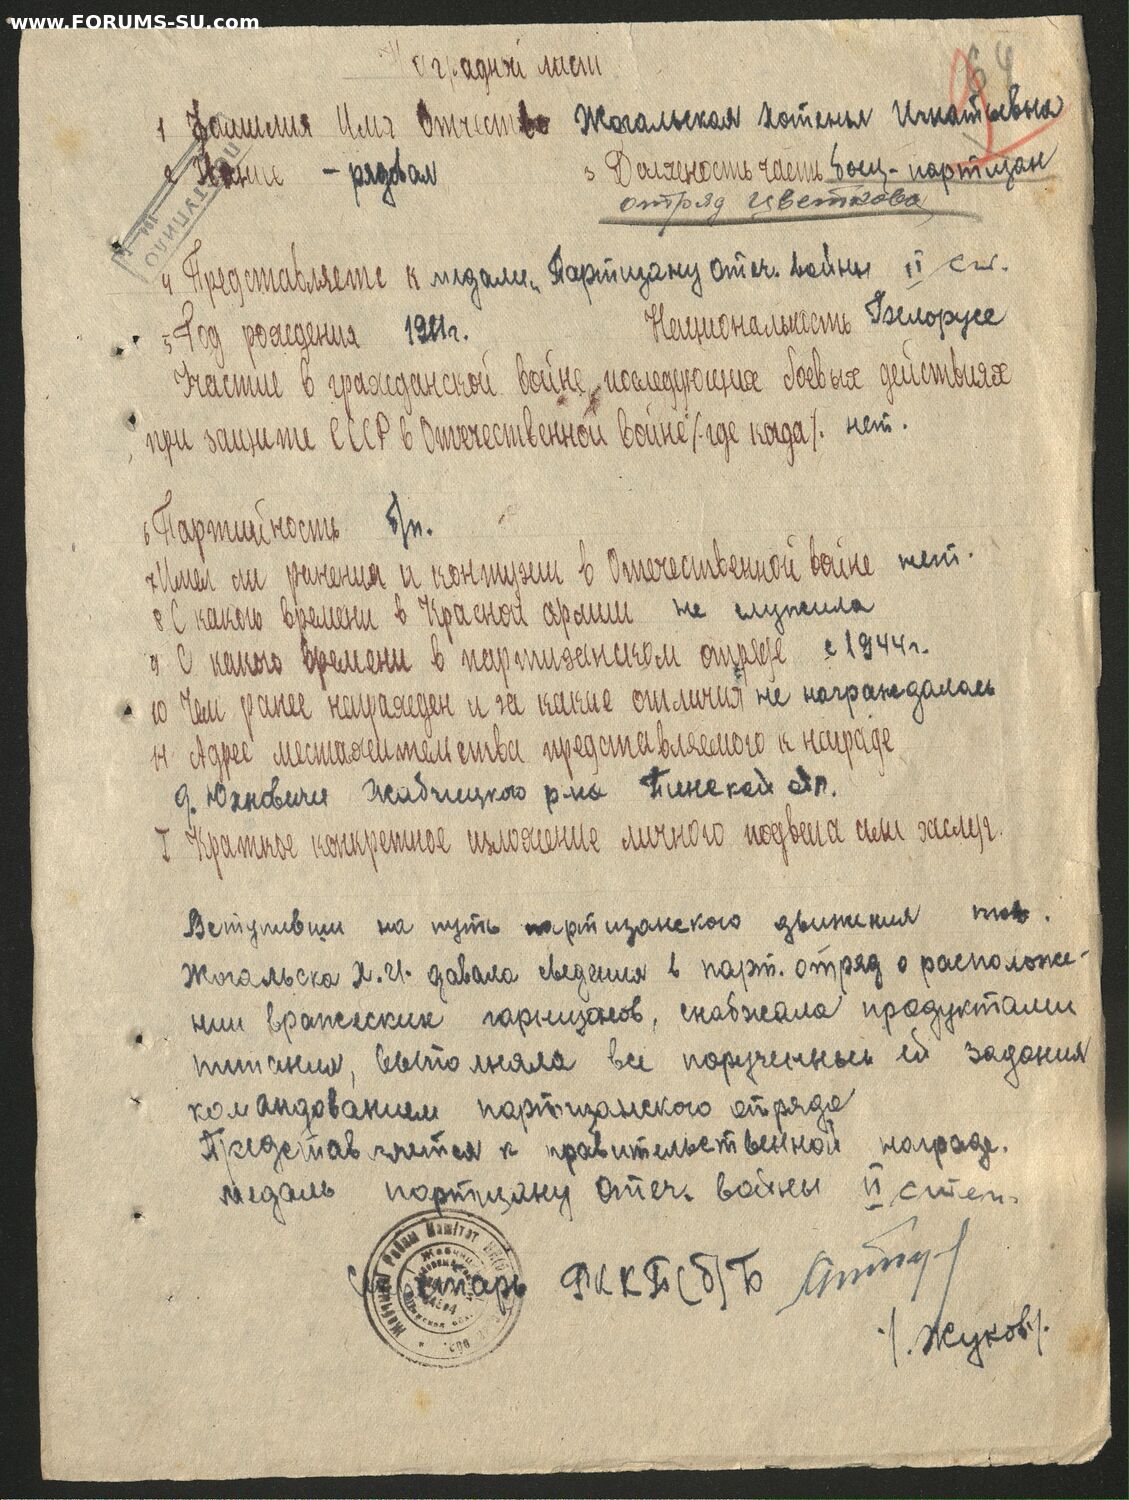 www.FORUMS-SU.com
64
Наградной лист
1 Фамилия Имя Отчество Жогальская Хотенья Игнатьевна
2 Звание – рядовая 3 Должность часть боец-партизан
отряд Цветкова
ПОСТУПИЛО
4 Представляете к медали „Партизану Отеч. войны II ст.
5 Год рождения Национальность Белорусс
Участие в гражданской войне, последующих боевых действиях
при защите СССР в Отечественной войне /где когда/. нет.
6 Партийность б/п.
7 Имел ли ранения и контузии в Отечественной войне нет.
8 С какого времени в Красной армии не служила
9 С какого времени в партизанском отряде с 1944 г.
10 Чем ранее награжден и за какие отличия не награждалась
11 Адрес местожительства представляемого к награде
д. Юхновичи Жабчицкого р-на Пинской обл.
I Краткое конкретное изложение личного подвига или заслуг.
Вступивши на путь партизанского движения тов.
Жогальска Х.И. давала сведения в парт. отряд о расположе-
нии вражеских гарнизонов, снабжала продуктами
питания, выполняла все порученные ей задания
командованием партизанского отряда
Представляется к правительственной награде.
медаль партизану Отеч. войны II степ.
Секретарь РККП(б)Б
/. Жуков./